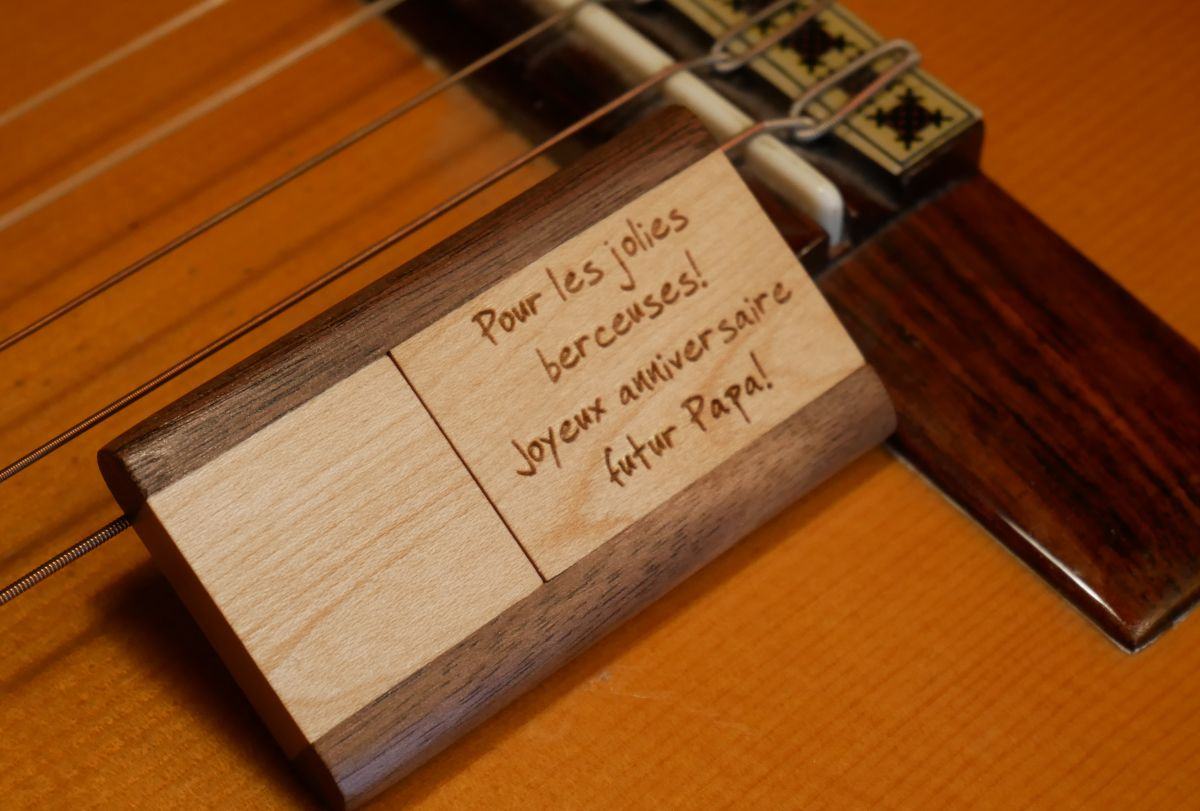 Pour les jolies
berceuses!
Joyeux anniversaire
futur Papa!